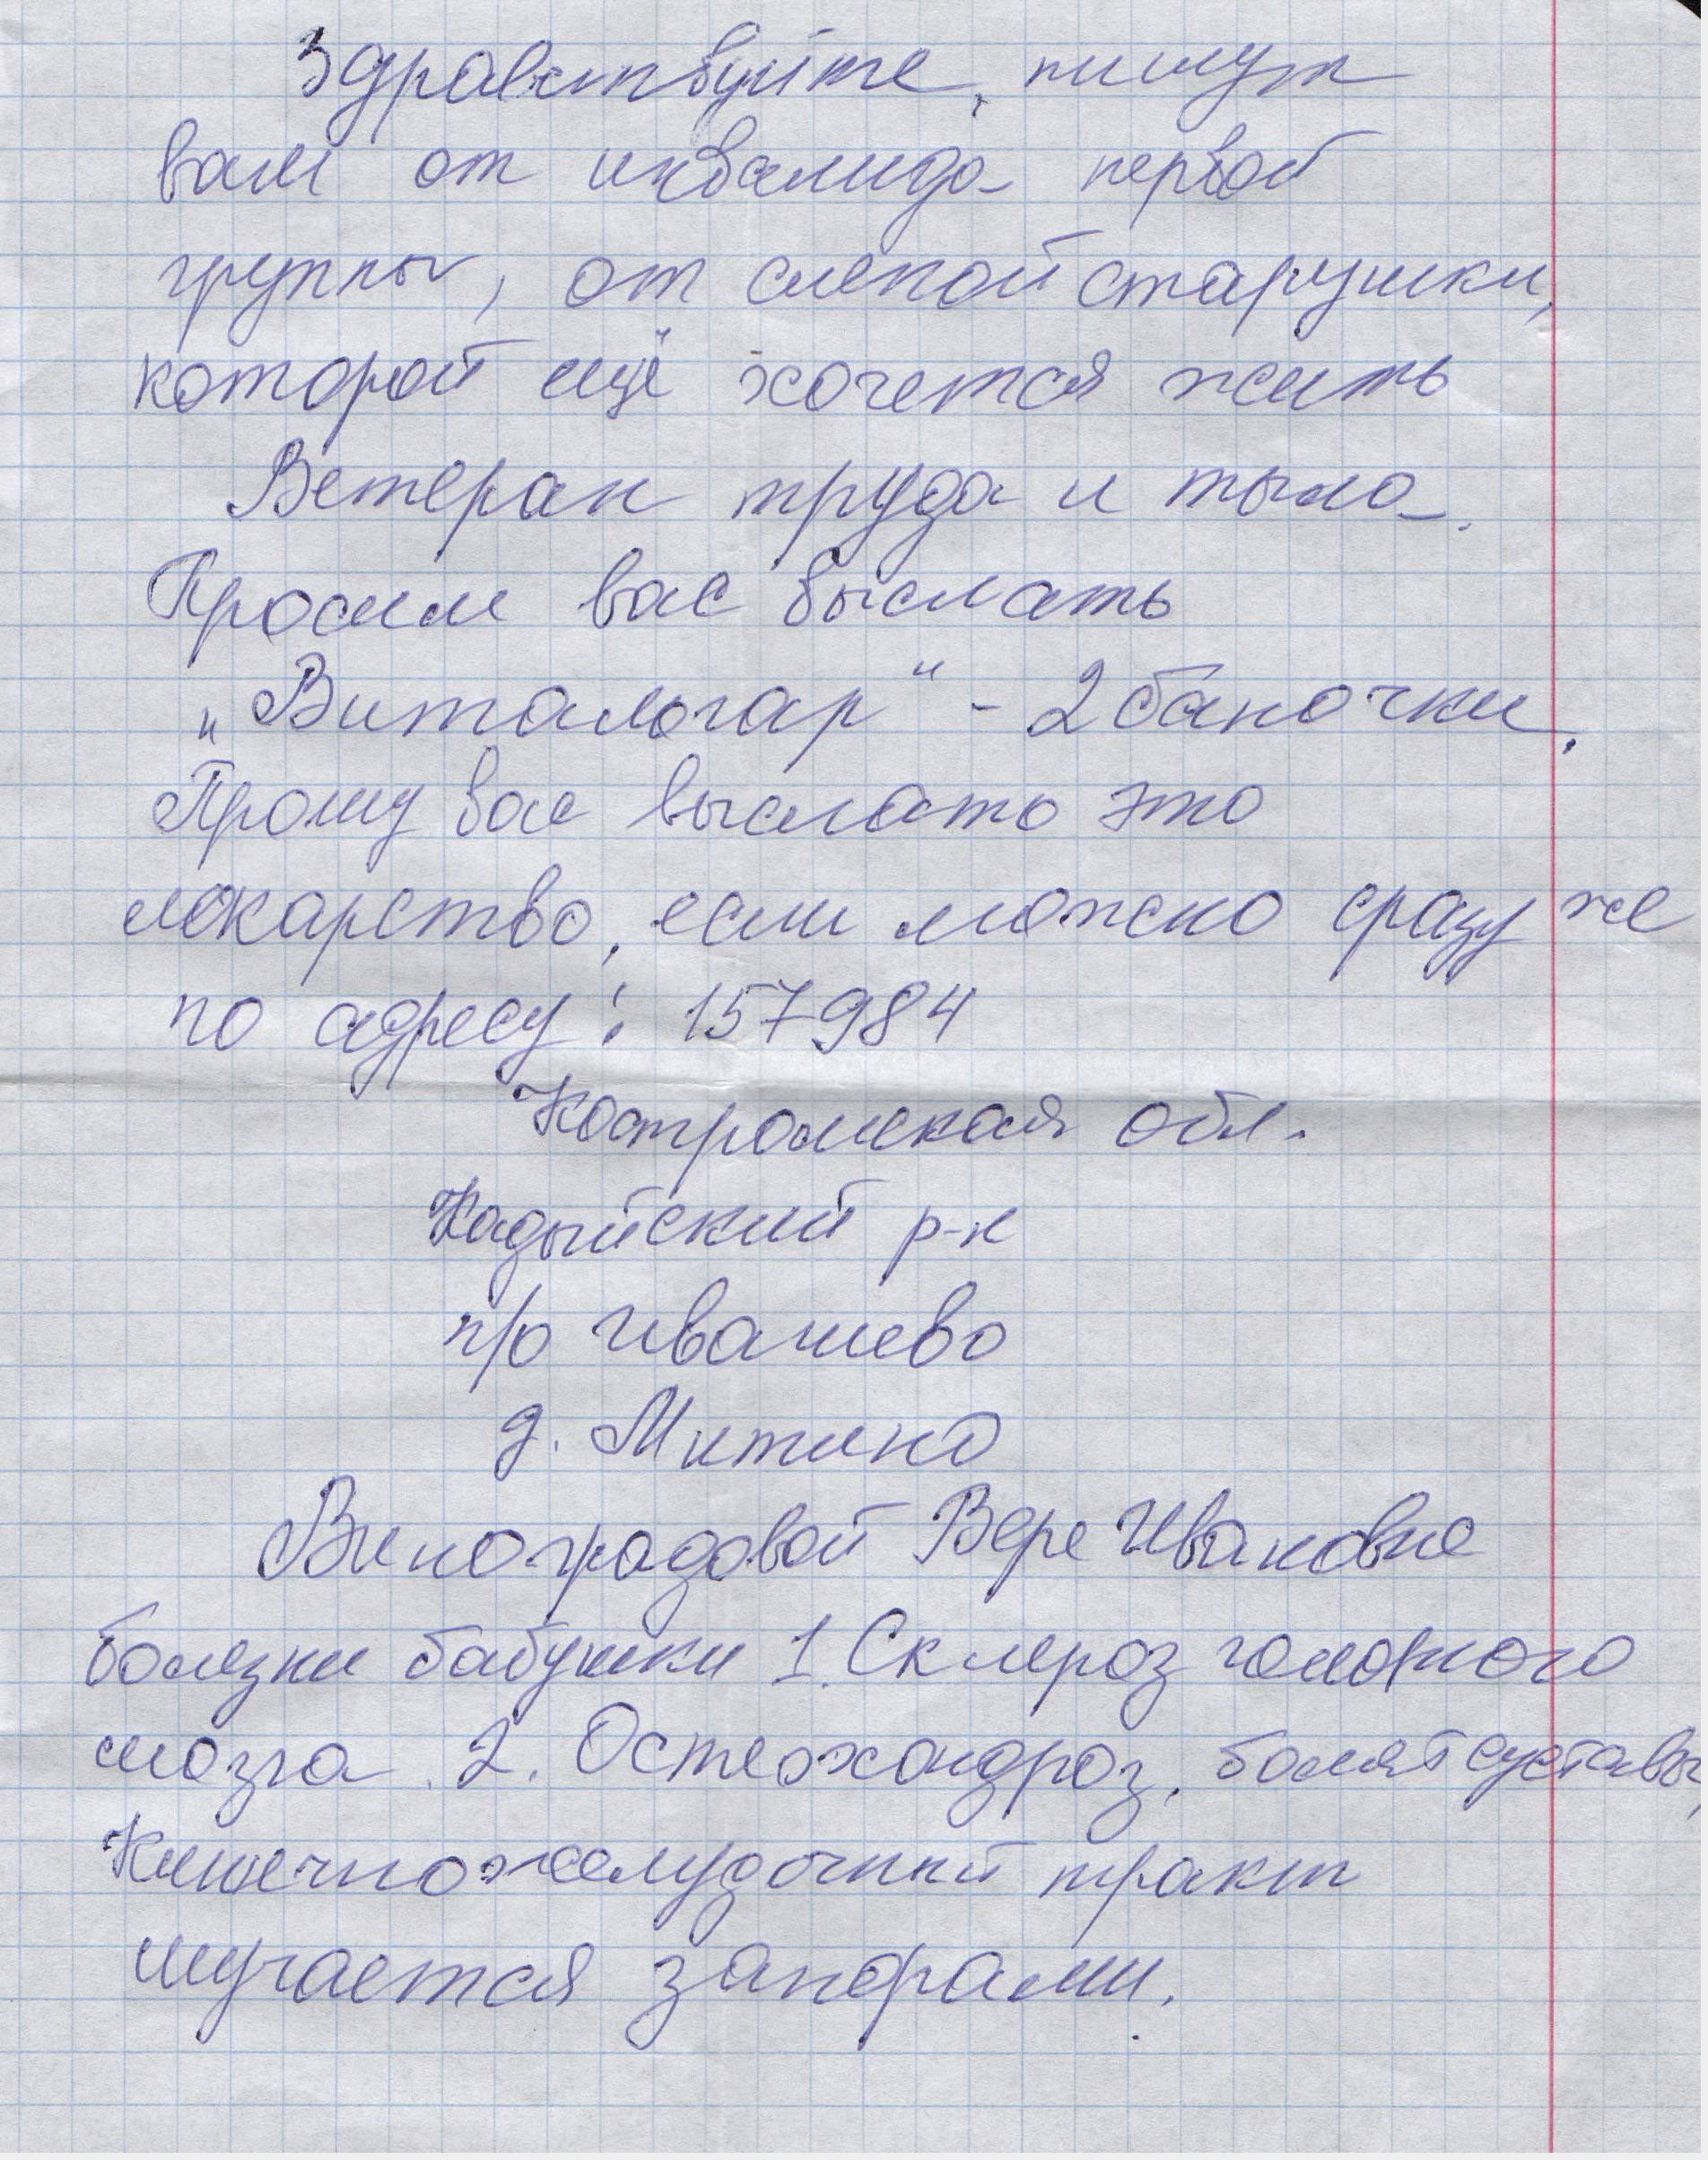 Здравствуйте, пишут
вам от инвалида первой
группы, от слепой старушки,
которой ещё хочется жить
Ветеран труда и тыла.
Просим вас выслать
"Витальгар" - 2 баночки.
Прошу вас выслать это
лекарство, если можно сразу же
по адресу: 157984
Костромская обл.
Кадыйский р-н
п/о Ивашево
д. Митино
Виноградовой Вере Ивановне
болезни бабушки 1. Склероз головного
мозга. 2. Остеохондроз, болят суставы,
Кишечножелудочный тракт
мучается запорами.